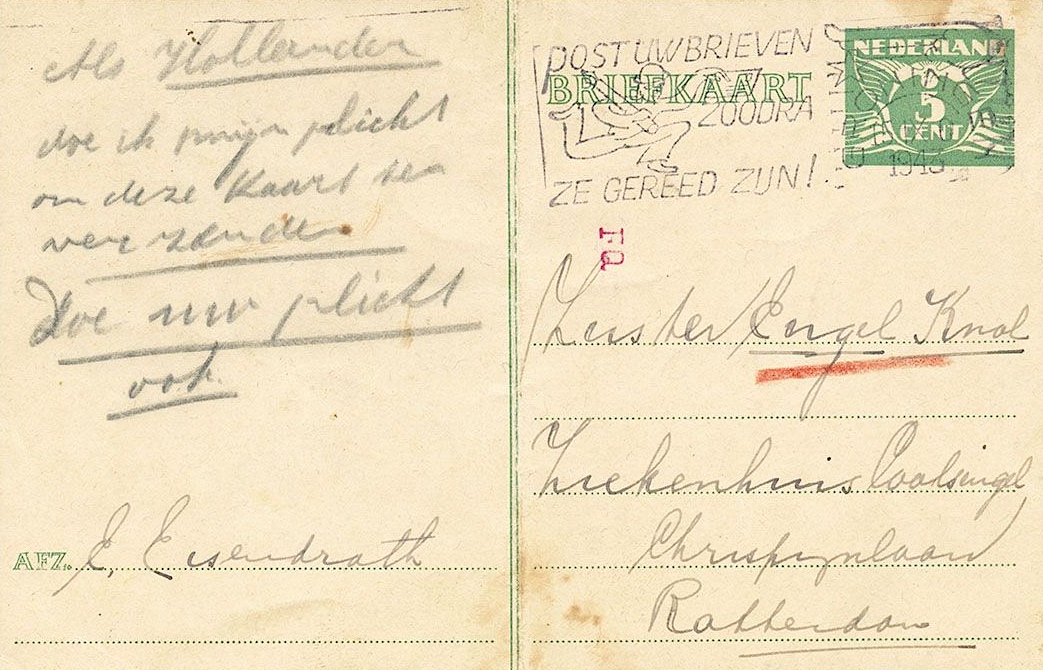 Als Hollander
doe ik mijn plicht
om deze Kaart ten
verzenden
Doe uw plicht
ook.
AFZ. E, Eisendrath
POST UW BRIEVEN
BRIEFKAART
ZOODRA
ZE GEREED ZIJN!
NEDERLAND
5
CENT
1943
FQ
Zuster Engel Knol
Ziekenhuis Coolsingel
Chrispijnlaan
Rotterdam